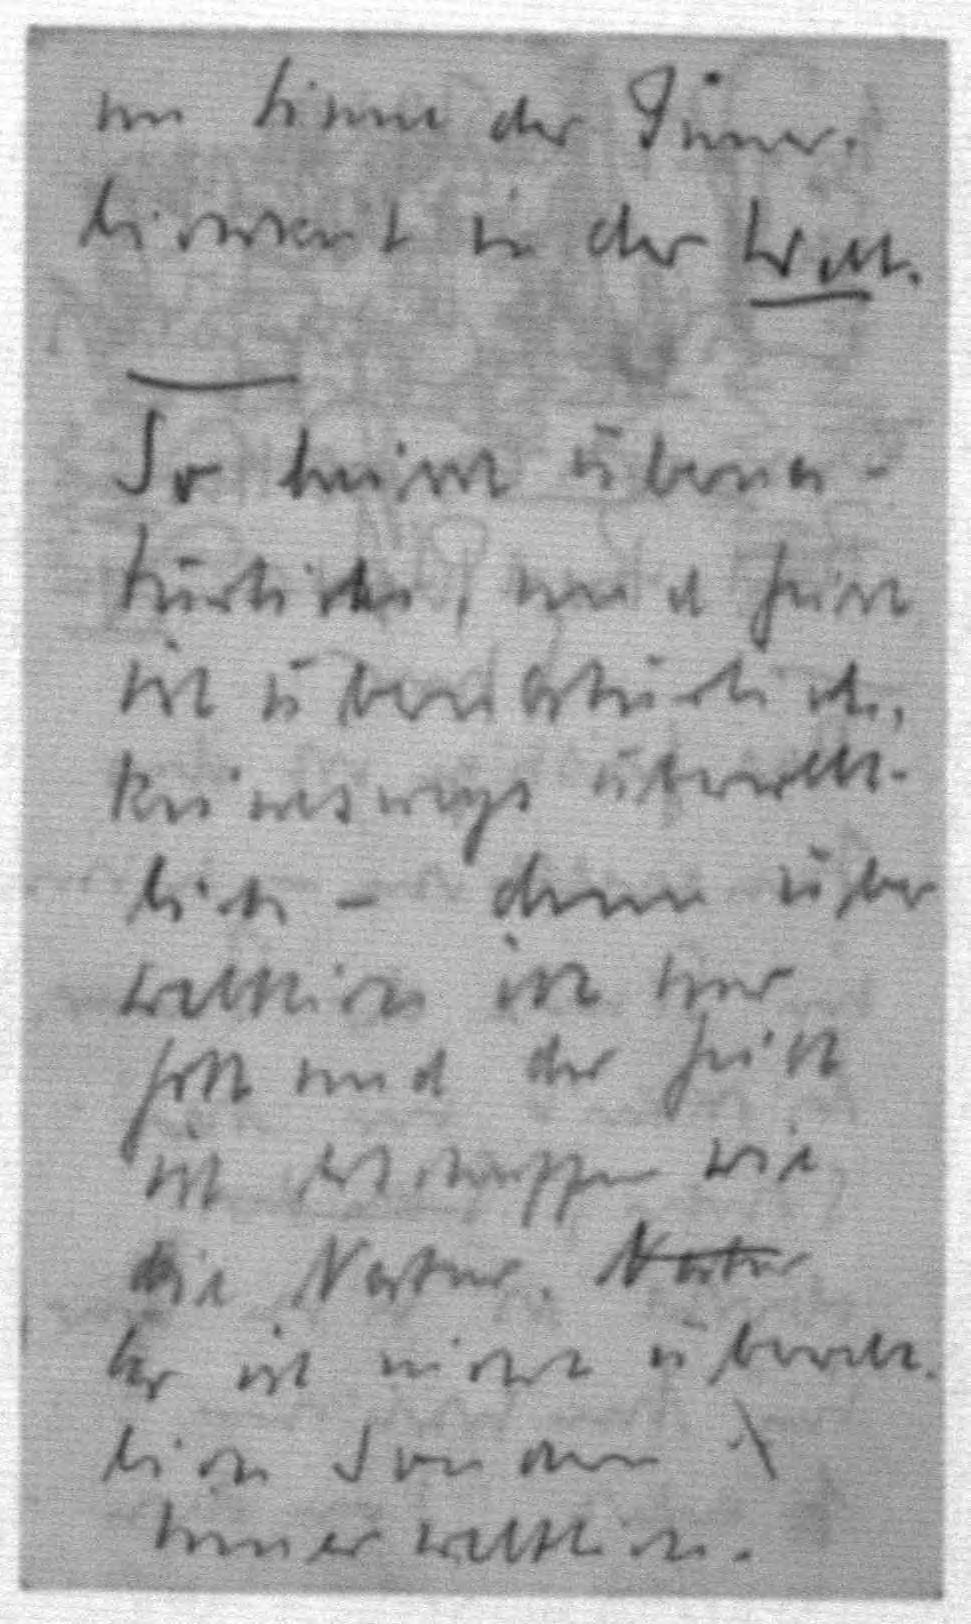 im Sinne der Inner-
lichkeit in der Welt.
So heisst überna-
türliche, und Geist
ist übernatürlich,
keineswegs überwelt-
lich – denn über
weltlich ist nur
Gott und der Geist
ist geschaffen wie
die Natur. Natur
Er ist nicht überwelt-
lich sondern
innerweltlich.